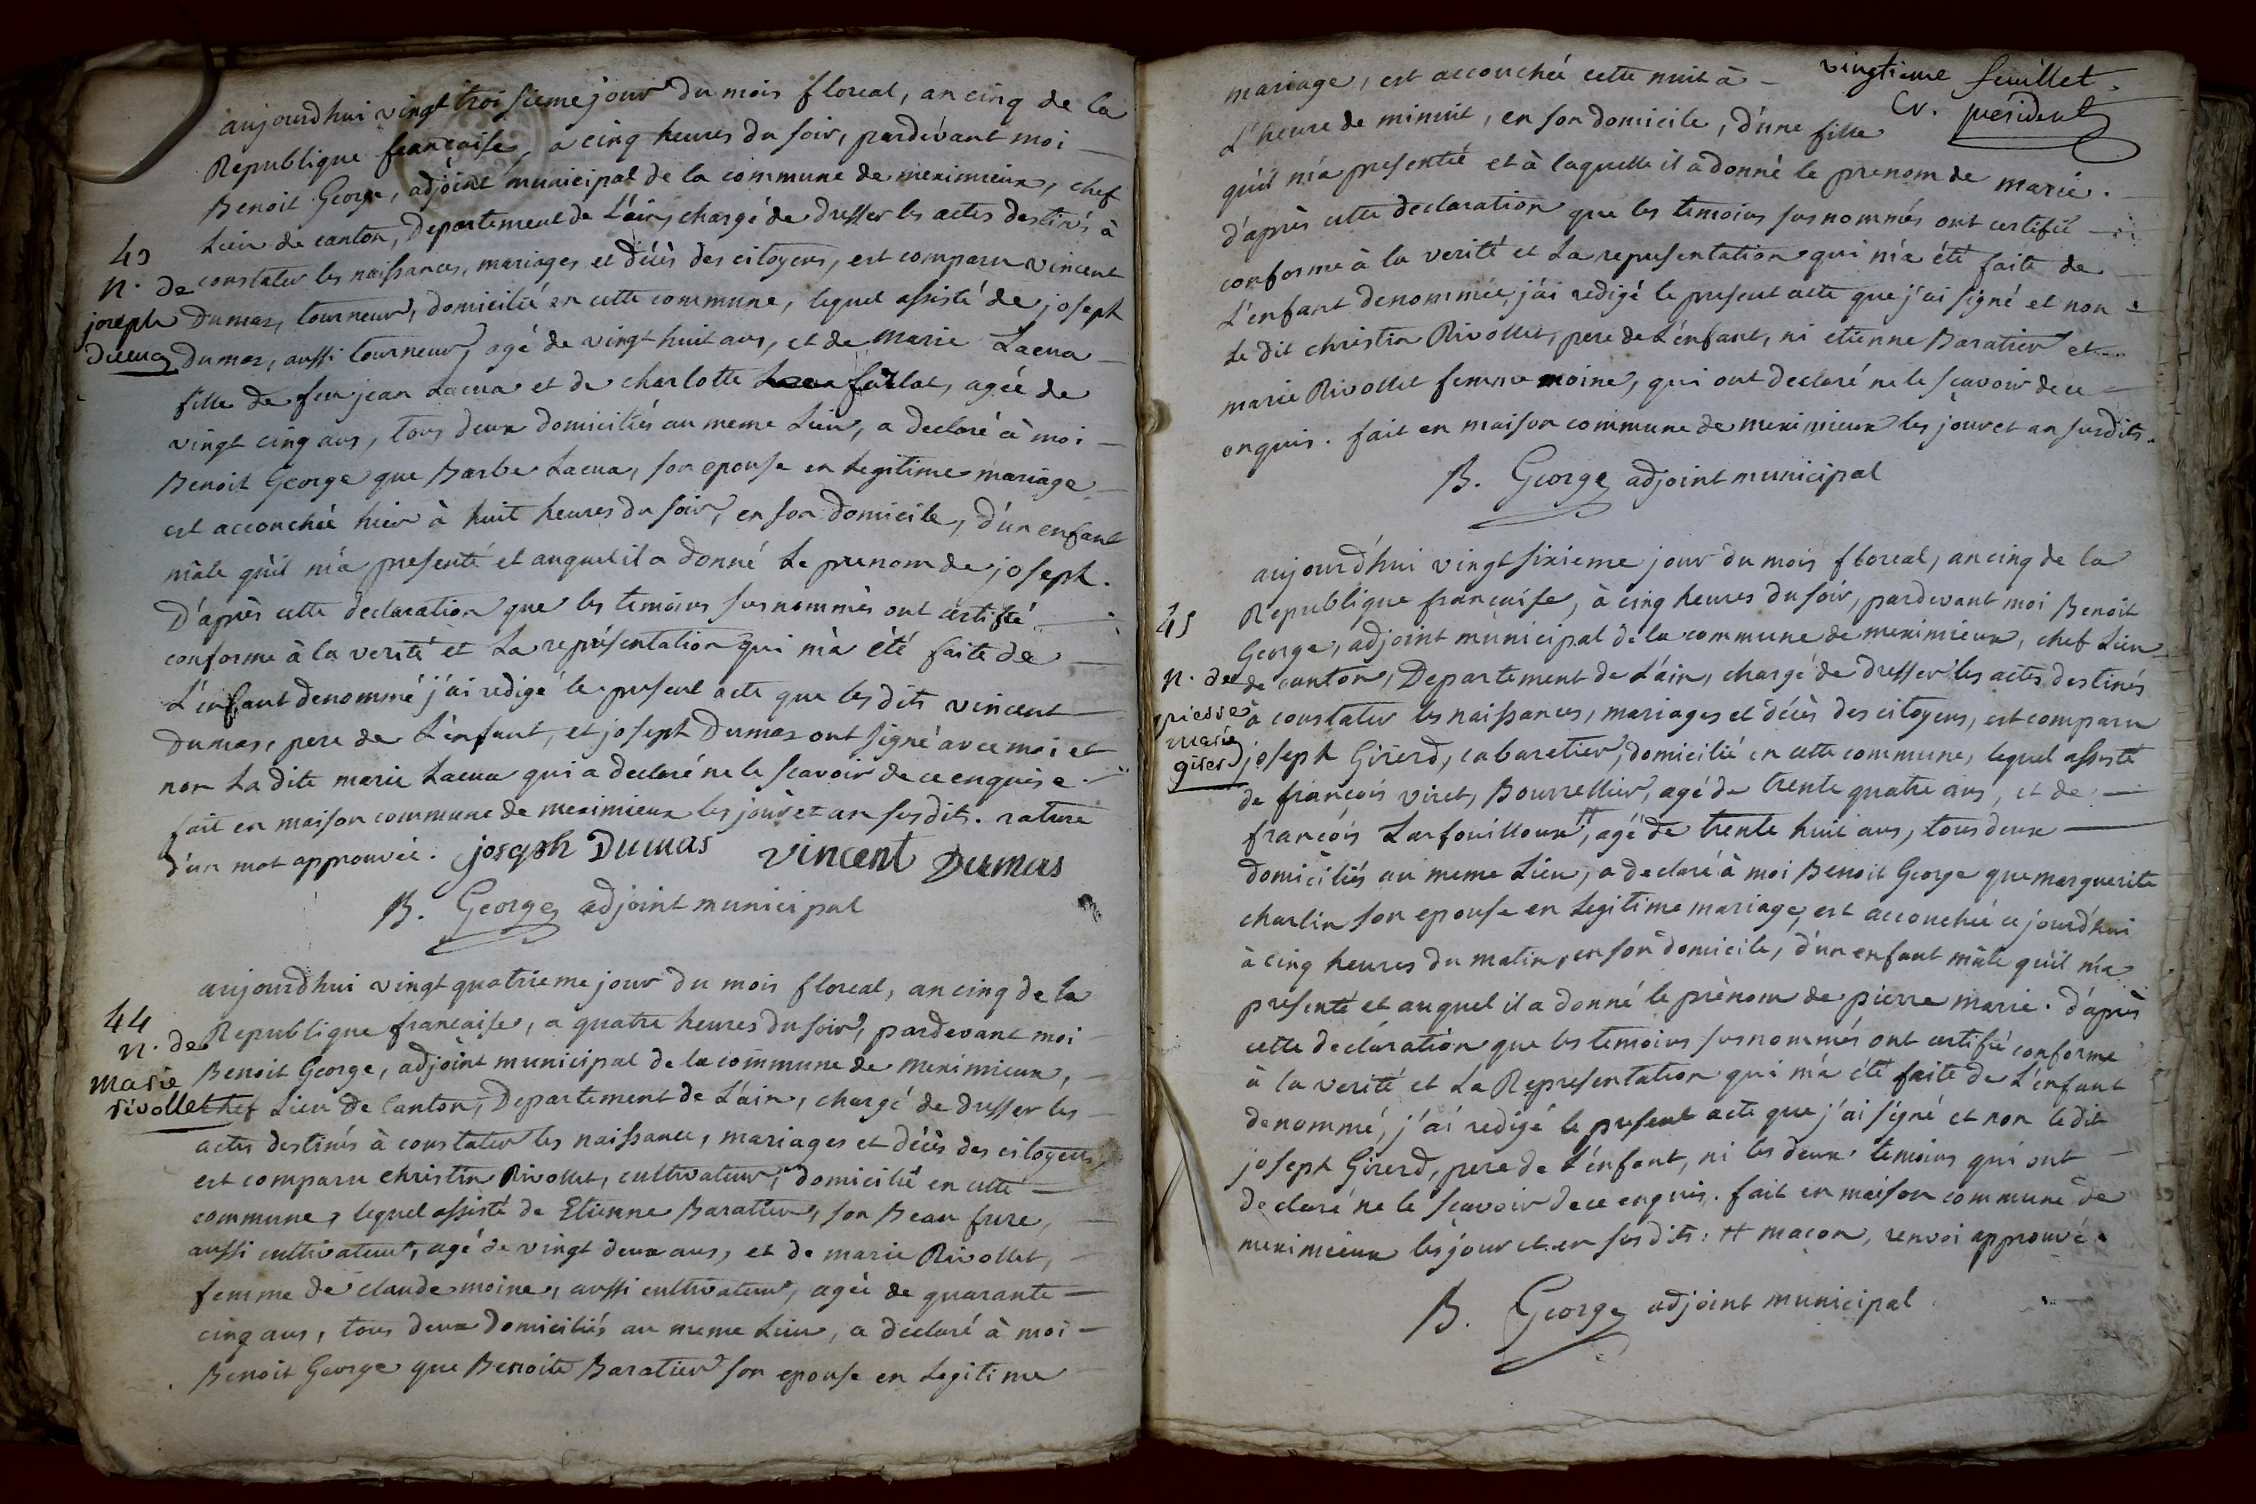 aujourdhui vingt troisieme jour du mois floreal, an cinq de la
Republique francaise, a cinq heures du soir, pardevant moi
Benoit George, adjoint municipal de la commune de meximieux, chef
Lieu de canton, Departement de L'ain, chargé de dresser les actes destinés à
43
n. de constater les naissances, mariages et décès des citoyens, est comparu vincent
joseph Dumas, tourneur, domicilié en cette commune, lequel assisté de joseph
dumas dumas, aussi tourneur, agé de vingt huit ans, et de marie Lacua
fille de feu jean Lacua et de charlotte fallat, agée de
vingt cinq ans, tous deux domiciliés au meme Lieu, a declaré à moi
Benoit George que Barbe Lacua, son epouse en Legitime mariage
est accouchée hier à huit heures du soir, en son domicile, d'un enfant
mâle qu'il m'a presenté et auquel il a donné Le prenom de joseph.
D'après cette declaration que les temoins susnommés ont certifié
conforme à la verité et La représentation qui m'a été faite de
L'enfant denommé j'ai redigé le present acte que les dits vincent
Dumas, pere de L'enfant, et joseph Dumas ont signé avec moi et
non La dite marie Lacua qui a declaré ne le scavoir de ce enquise.
fait en maison commune de meximieux les jour et an susdits. rature
d'un mot approuvée. joseph Dumas vincent Dumas
B. George adjoint municipal
aujourdhui vingt quatrieme jour du mois floreal, an cinq de la
44
n. de Republique francaise, a quatre heures du soir, pardevant moi
marie Benoit George, adjoint municipal de la commune de meximieux,
rivollet chef Lieu de Canton, Departement de L'ain, chargé de dresser les
actes destinés à constater les naissance, mariages et décès des citoyens
est comparu christin Rivollet, cultivateur, domicilié en cette
commune, lequel assisté de Etienne Baratier, son Beau frere,
aussi cultivateur, agé de vingt deux ans, et de marie Rivollet,
femme de claude moine, aussi cultivateur, agée de quarante
cinq ans, tous deux domiciliés au meme Lieu, a declaré à moi
Benoit George que Benoite Baratier son epouse en Legitime
vingtieme feuillet.
cv. président
mariage, est accouchée cette nuit à
L'heure de minuit, en son domicile, d'une fille
qu'il m'a presentée et à laquelle il a donné le prenom de marie.
d'après cette declaration que les temoins susnommés ont certifié
conforme à la verité et La representation qui m'a été faite de
L'enfant denommée, j'ai redigé le present acte que j'ai signé et non
Le dit christin Rivollet, pere de L'enfant, ni etienne Baratier et
marie Rivollet femme moine, qui ont declaré ne le scavoir de ce
enquis. fait en maison commune de meximieux les jour et an susdits.
B. George adjoint municipal
aujourd'hui vingt sixieme jour du mois floreal, an cinq de la
45
Republique francaise, à cinq heures du soir, pardevant moi Benoit
George, adjoint municipal de la commune de meximieux, chef Lieu
n. de de canton, Departement de L'ain, chargé de dresser les actes destinés
pierre à constater les naissances, mariages et décès des citoyens, est comparu
marie
girerd joseph Girerd, cabaretier, domicilié en cette commune, lequel assisté
de francois viret, Bourrellier, agé de trente quatre ans, et de
francois Larfouilloux, # agé de trente huit ans, tous deux
domiciliés au meme Lieu, a declaré à moi Benoit George que marguerite
charlin son epouse en Legitime mariage, est accouchée ce jourd'hui
à cinq heures du matin, en son domicile, d'un enfant mâle qu'il m'a
presenté et auquel il a donné le prènom de pierre marie. d'après
cette declaration que les temoins susnommés ont certifié conforme
à la verité et La Representation qui m'a été faite de L'enfant
denommé, j'ai redigé le present acte que j'ai signé et non ledit
joseph Girerd, pere de L'enfant, ni les deux temoins qui ont
declaré ne le scavoir de ce enquis. fait en maison commune de
meximieux les jour et an susdits: # macon, renvoi approuvé.
B. George adjoint municipal